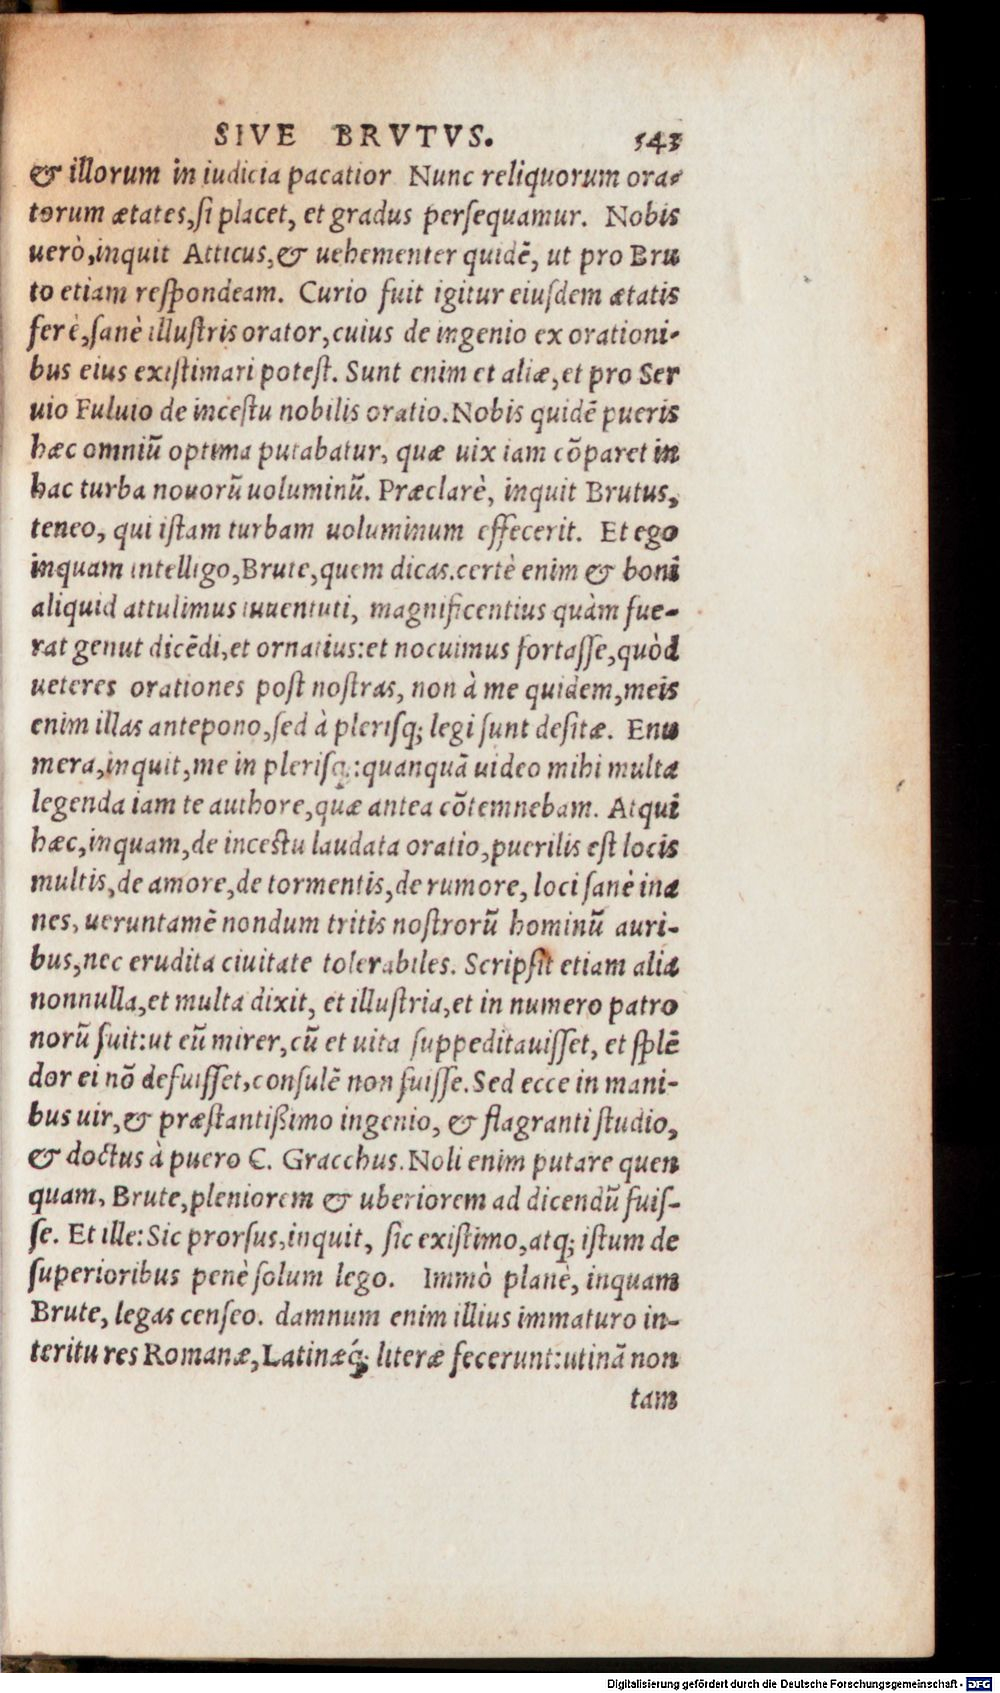 SIVE BRVTVS. 543
& illorum in iudicia pacatior Nunc reliquorum ora-
torum ætates, si placet, et gradus persequamur. Nobis
uerò, inquit Atticus, & uehementer quidē, ut pro Bru
to etiam respondeam. Curio fuit igitur eiusdem ætatis
ferè, sanè illustris orator, cuius de ingenio ex orationi-
bus eius existimari potest. Sunt enim et aliæ, et pro Ser
uio Fuluio de incestu nobilis oratio. Nobis quidē pueris
hæc omniū optima putabatur, quæ uix iam cōparet in
hac turba nouorū uoluminū. Præclarè, inquit Brutus,
teneo, qui istam turbam uoluminum effecerit. Et ego
inquam intelligo, Brute, quem dicas. certè enim & boni
aliquid attulimus iuuentuti, magnificentius quàm fue-
rat genut dicēdi, et ornatius: et nocuimus fortasse, quòd
ueteres orationes post nostras, non à me quidem, meis
enim illas antepono, sed à plerisq; legi sunt desitæ. Enu
mera, inquit, me in plerisq;: quanquā uideo mihi multa
legenda iam te authore, quæ antea cōtemnebam. Atqui
hæc, inquam, de incestu laudata oratio, puerilis est locis
multis, de amore, de tormentis, de rumore, loci sanè ina
nes, ueruntamē nondum tritis nostrorū hominū auri-
bus, nec erudita ciuitate tolerabiles. Scripsit etiam alia
nonnulla, et multa dixit, et illustria, et in numero patro
norū fuit: ut eū mirer, cū et uita suppeditauisset, et splē
dor ei nō defuisset, consulē non fuisse. Sed ecce in mani-
bus uir, & præstantißimo ingenio, & flagranti studio,
& doctus à puero C. Gracchus. Noli enim putare quen
quam, Brute, pleniorem & uberiorem ad dicendū fuis-
se. Et ille: Sic prorsus, inquit, sic existimo, atq; istum de
superioribus penè solum lego. Immò planè, inquam
Brute, legas censeo. damnum enim illius immaturo in-
teritu res Romanæ, Latinæq́; literæ fecerunt: utinā non
tam
Digitalisierung gefördert durch die Deutsche Forschungsgemeinschaft - DFG